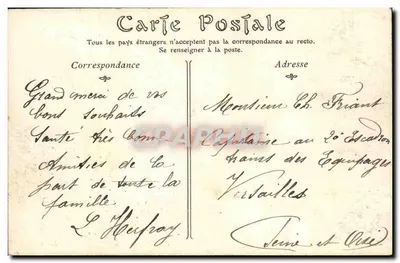 Carte Postale
Tous les pays étrangers n'acceptent pas la correspondance au recto.
Se renseigner à la poste.
Correspondance
Grand merci de vos
bons souhaits
Santé très bon
Amitiés de la
part de toute la
famille
L Herfray
Adresse
Monsieur Ch. Friant
Capitaine au 20 Escadron
trains des Equipages
Versailles
Seine et Oise